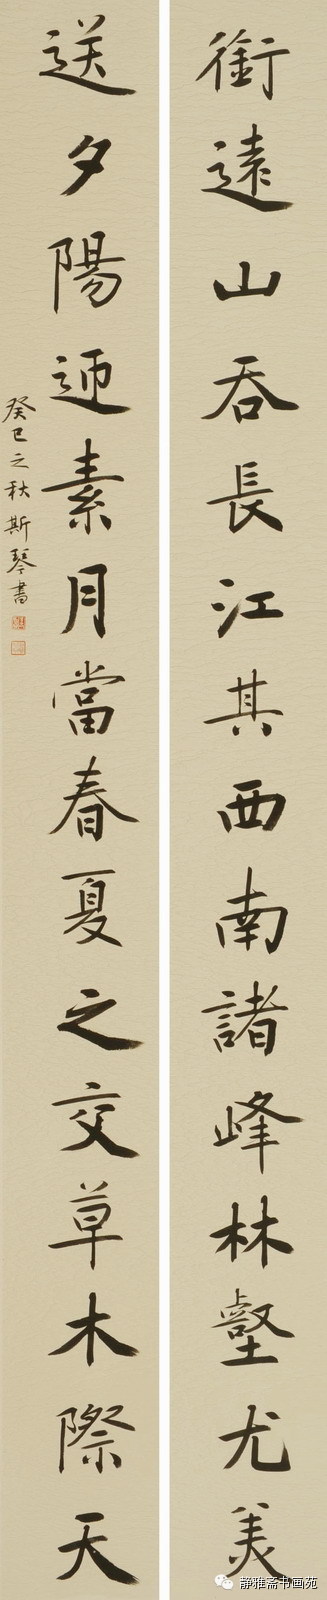 銜遠山吞長江其西南諸峰林壑尤美
送夕陽迎素月當春夏之交草木際天
癸巳之秋斯琴書
静雅斋书画苑